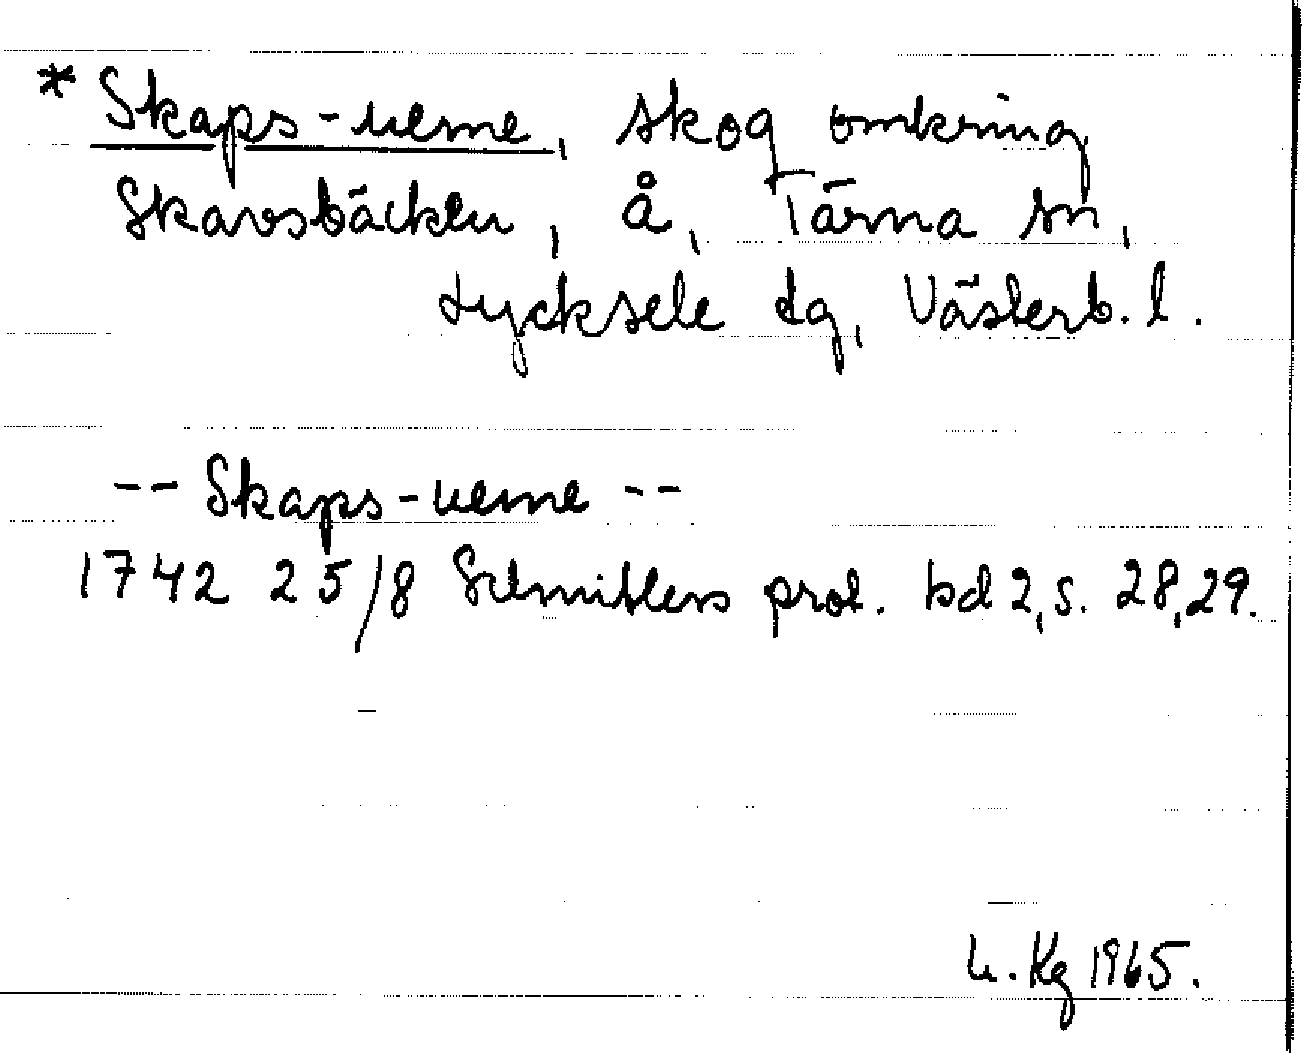 * Skaps-ueme, skog omkring
Skarvsbäcken, å, Tärna sn,
Lycksele tg, Västerb. l.
-- Skaps-ueme --
1742 25/8 Schnitlers prot. bd 2, s. 28, 29.
U. Kg 1965.